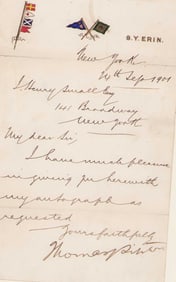 S.Y. ERIN.
New York
4th Sep 1901
J Henry Small Esq
141 Broadway
New York
My dear Sir
I have much pleasure
in giving you herewith
my autograph as
requested
Yours faithfully
Thomas J Lipton